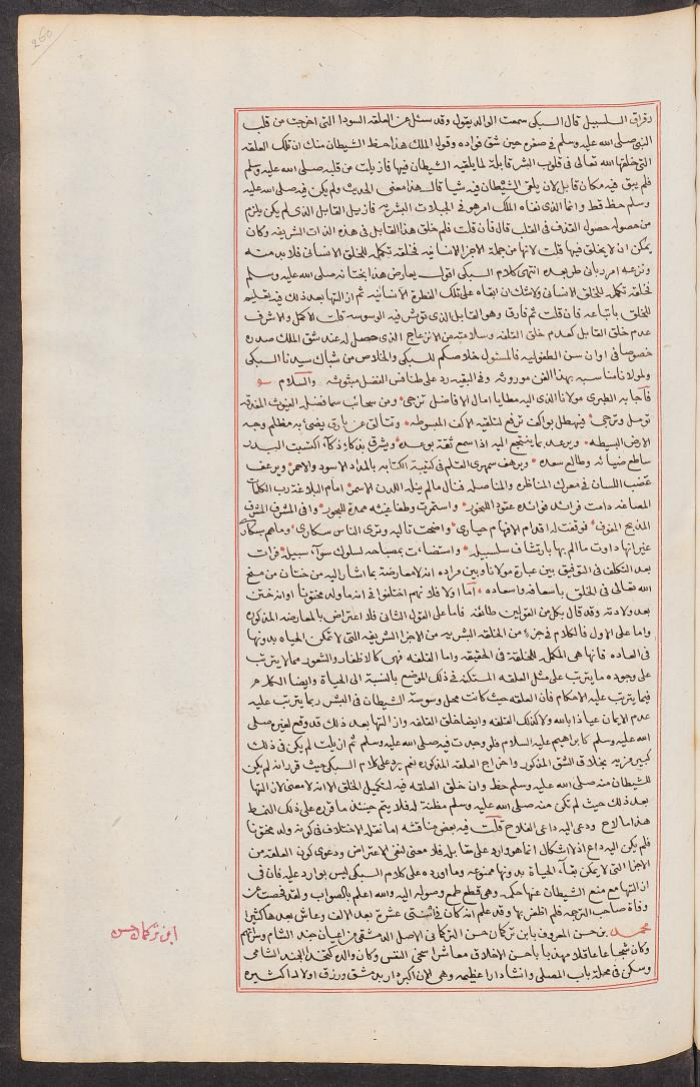 260
رفراق السلسبيل قال السبكى سمعت الوالد يقول وقد سئل عن العلقه السودا التى اخرجت من قلب
النبى صلى الله عليه وسلم فى صغره حين شق فواده وقول الملك هذا حظ الشيطان منك ان تلك العلقه
التى خلقها الله تعالى فى قلوب البشر قابلة لما يلقيه الشيطان فيها فازيلت من قلبه صلى الله عليه وسلم
فلم يبق فيه مكان قابل لان يلقى الشيطان فيه شيا قال هذا معنى الحديث ولم يكن فيه صلى الله عليه
وسلم حظ قط وانما الذى نفاه الملك امر هو فى الجبلات البشريه فازيل القابل الذى لم يكن يلزم
من حصوله حصول القذف فى القلب قال فان قلت فلم خلق هذا القابل فى هذه الذات الشريفه وكان
يمكن ان لا يخلق فيها قلت لانها من جملة الاجزا الانسانيه فخلقه تكملة للخلق الانسانى فلا بد منه
ونزعه امر ربانى طر بعد انتهى كلام السبكى اقول يعارض هذا بختانه صلى الله عليه وسلم
فخلقه تكمله للخلق الانسانى ولا شك ان ابقاه على تلك الفطرة الانسانيه ثم ازالتها بعد ذلك فيه تعليم
للخلق باتباعه فان قلت ثم فارق وهو القابل الذى توثر فيه الوسوسه قلت الاكمل والاشرف
عدم خلق القابل كعدم خلق القلفه وسلامته من الانزعاج الذى حصل له عند شق الملك صدره
خصوصا فى اوان سن الطفوليه فالمسئول خلاصكم للسبكى والخلاص من شباك سيدنا السبكى
ولمولانا مناسبه بهذا الفن موروثه وفى البقيه رد على طنافس الفضل مبثوثه والسلام
فاجابه الطبرى مولانا الذى اليه مطايا امال الافاضل تزجى ومن سحائب سما فضله الغيوث المغدقه
توسل وترجى فيهطل بواكف ترفع لتلقيه الاكف المبسوطه وتتالق عن بارق يضئ به مظلم وجه
الارض البسيطه ويرعد بما ينتجع اليه اذا سمع ثقة بوعده ويشرق بذكاء ذكاء اكتسبت البدر
ساطع ضيائه وطالع سعده ويرهف سمهرى القلم فى كتيبة الكتابه بالمداد الاسود والاحمر ويرعف
عضب اللسان فى معرك المناظره والمناضله فنال ما لم ينله اللدن الاسمر امام البلاغة رب الكلمات
المصاغه دامت فرائد فوائده عقود النحور واستمرت وطفا غيثه ممدة للبحور وافى المشرف المشرف
المدبج المفوف فوقفت له اقدام الافهام حيارى واضحت تاليه وترى الناس سكارى وما هم بسكارى
غير انها داوت ما الم بها بارتشاف سلسبيله واستضاءت بمصباحه لسلوك سواء سبيله فرات
بعد التكلف فى التوفيق بين عبارة مولانا وبين مراده انه لا معارضة بما اشار اليه من ختان من منح
الله تعالى فى الخلق باسعافه واسعاده اما اولا فلانهم اختلفوا فى انه ما ولد مختونا او انه ختن
بعد ولادته وقد قال بكل من القولين طائفه فاما على القول الثانى فلا اعتراض بالمعارضه المذكوره
واما على الاول فالكلام فى جزء من الخلقه البشريه من الاجزا الشريفه التى لا تمكن الحياه بدونها
فى العاده فانها هى المكمله للخلقة فى الحقيقه واما القلفه فهى كالاظفار والشعور مما لا يترتب
على وجوده ما يترتب على مثل العلقه المستكنه فى ذلك الموضع بالنسبة الى الحياة وايضا الكلام
فيما يترتب عليه الاحكام فان العلقه حيث كانت محل وسوسة الشيطان فى البشر ربما يترتب عليه
عدم الايمان عياذا بالله ولا كذلك القلفه وايضا خلق القلفه وازالتها بعد ذلك قد وقع لغيره صلى
الله عليه وسلم كابراهيم عليه السلام فلو وجدت فيه صلى الله عليه وسلم ثم ازيلت لم يكن فى ذلك
كبير مزيه بخلاف الشق المذكور واخراج العلقه المذكوره نعم يرد على كلام السبكى حيث قرر انه لم يكن
للشيطان منه صلى الله عليه وسلم حظ وان خلق العلقه فيه لتكميل الخلق الا انه لا معنى لازالتها
بعد ذلك حيث لم تكن منه صلى الله عليه وسلم مظنة له فلا يتم حينئذ ما قرره على ذلك النمط
هذا ما لاح ودعى اليه داعى الفلاح قلت فيه بعض مناقشه اما نقله الاختلاف فى كونه ولد مختونا
فلم يكن اليه داع اذ الاشكال انما هو وارد على مقابله فلا معنى لنفى الاعتراض ودعوى كون العلقه من
الاجزا التى لا يمكن بقاء الحياة بدونها ممنوعه وما اورده على كلام السبكى ليس بوارد عليه فان فى
ازالتها مع منع الشيطان عنها حكمه وهى قطع طمع وصوله اليه والله اعلم بالصواب ولقد فحصت عن
وفاة صاحب الترجمه فلم اظفر بها وقد علم انه كان فى اثنتى عشرة بعد الالف وعاش بعدها كثيرا
محمد بن حسن المعروف بابن تركمان حسن التركمانى الاصل الدمشقى من اعيان جند الشام وسراتهم
وكان شجاعا عاقلا مهذبا باحسن الاخلاق معاشرا سخى النفس وكان والده كتخدا الجند الشامى
وسكن فى محلة باب المصلى وانشا دارا عظيمه وهى الان اكبر دار بدمشق ورزق اولادا كثيره
ابن تركمان حسن